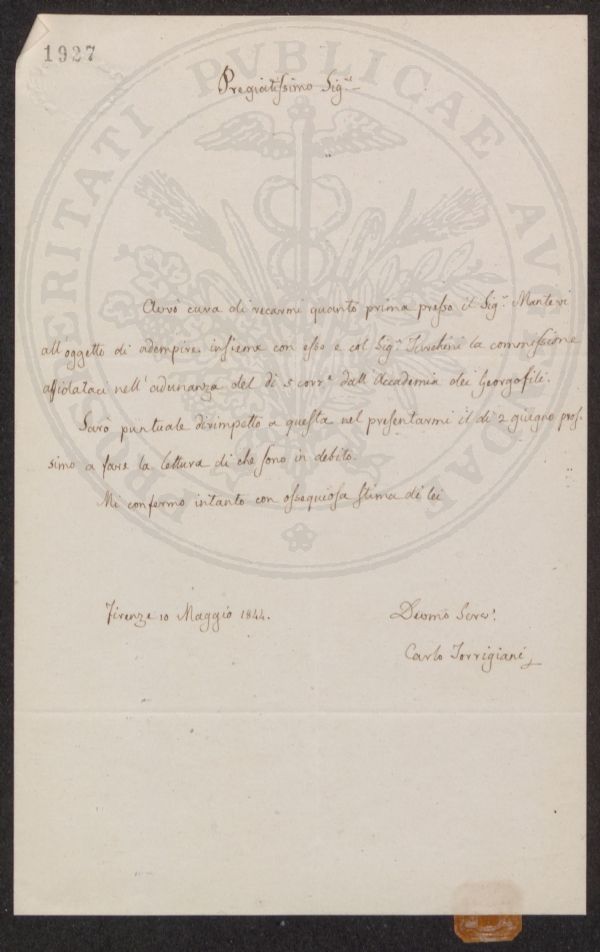 1927
PROSPERITATI PVBLICAE AVGENDAE
Pregiatissimo Sig.re
Avrò cura di recarmi quanto prima presso il Sig.r Manteri
all'oggetto di adempire insieme con esso e col Sig.r Turchini la commissione
affidataci nell'adunanza del dì 5 corr.e dall'Accademia dei Georgofili.
Sarò puntuale dirimpetto a questa nel presentarmi il dì 2 giugno pros-
simo a fare la lettura di che sono in debito.
Mi confermo intanto con ossequiosa stima di lei
Firenze 10 Maggio 1844.
Devmo Serv.
Carlo Torrigiani